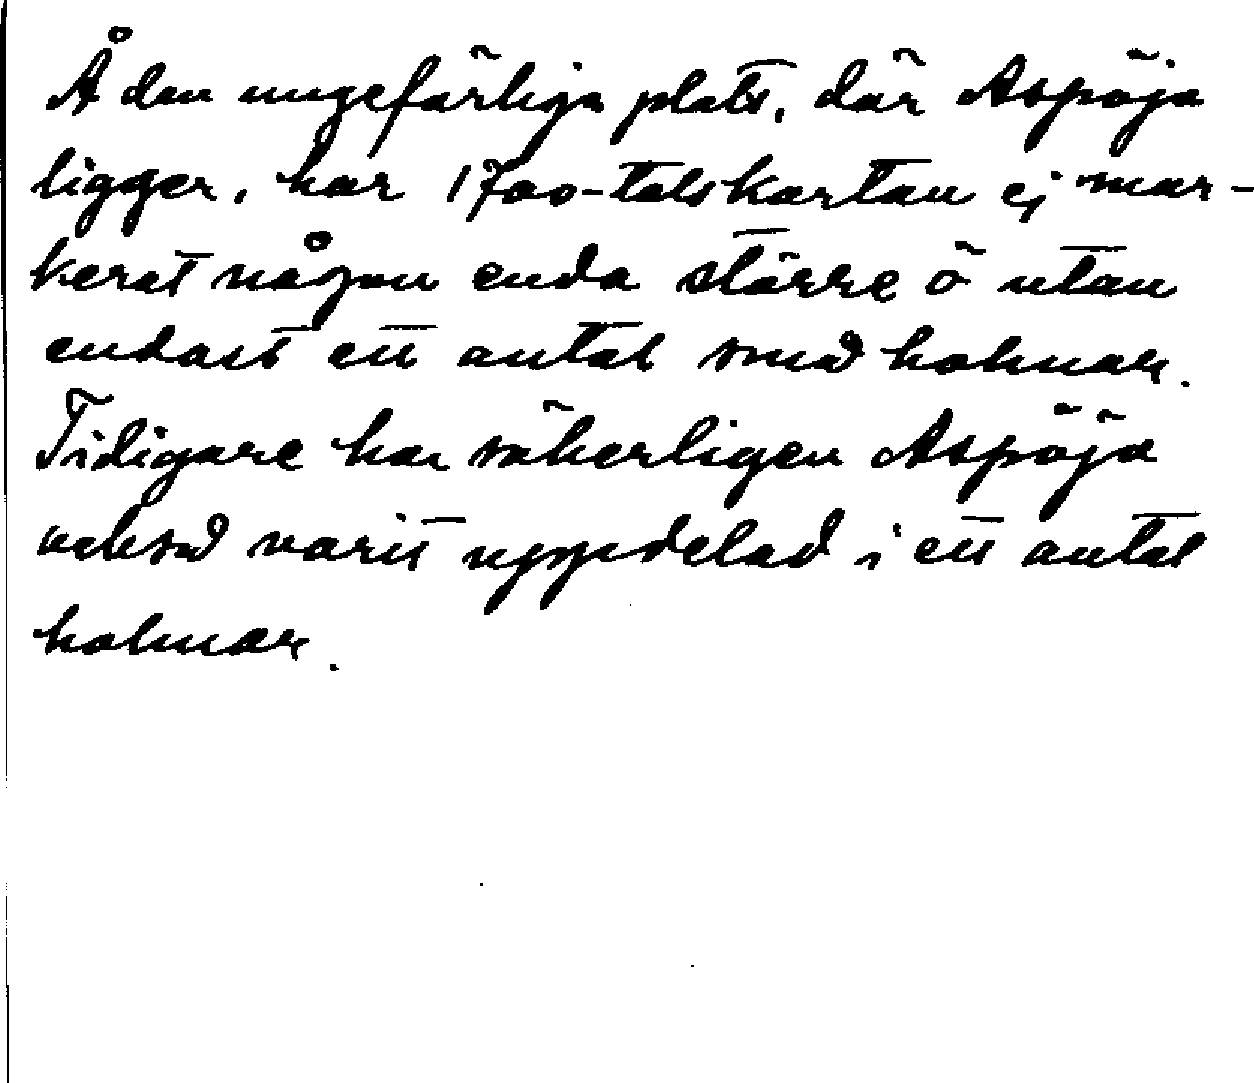 Å den ungefärliga plats, där Aspöja
ligger, har 1700-talskartan ej mar-
kerat någon enda större ö utan
endast ett antal små holmar.
Tidigare har säkerligen Aspöja
också varit uppdelad i ett antal
holmar.